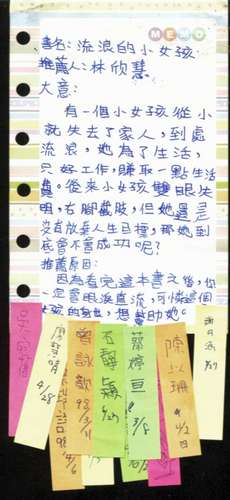 MEMO
書名:流浪的小女孩
推薦人:林欣慧
大意:
有一個小女孩從小
就失去了家人,到處
流浪,她為了生活,
只好工作,賺取一點生活
費。從來小女孩雙眼失
明,右腳截肢,但她還是
沒有放棄人生目標,那她到
底會不會成功呢?
推薦原因:
因為看完這本書之後,你
一定會眼淚直流,可憐這個
女孩的身世,想幫助她。
4/28
曾詠歆
98/3/11
4/6
石馥綺
5/27
蔡婷亘
3/8
陳以珊
4/2